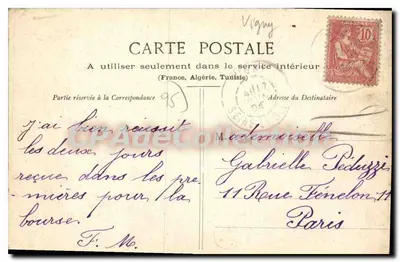 Vigny
10
CARTE POSTALE
A utiliser seulement dans le service intérieur
(France, Algérie, Tunisie)
Partie réservée à la Correspondance
Adresse du Destinataire
95
J'ai bien reussit
les deux jours
reçue dans les pre-
mières pour la
bourse.
F. M.
Mademoiselle
Gabrielle Peduzzi
11 Rue Fénelon 11
Paris